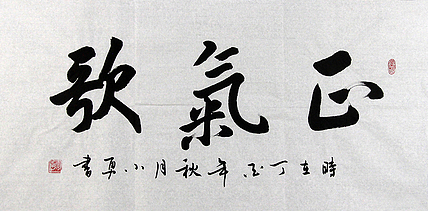 正氣歌
時在丁酉年秋月小夏書